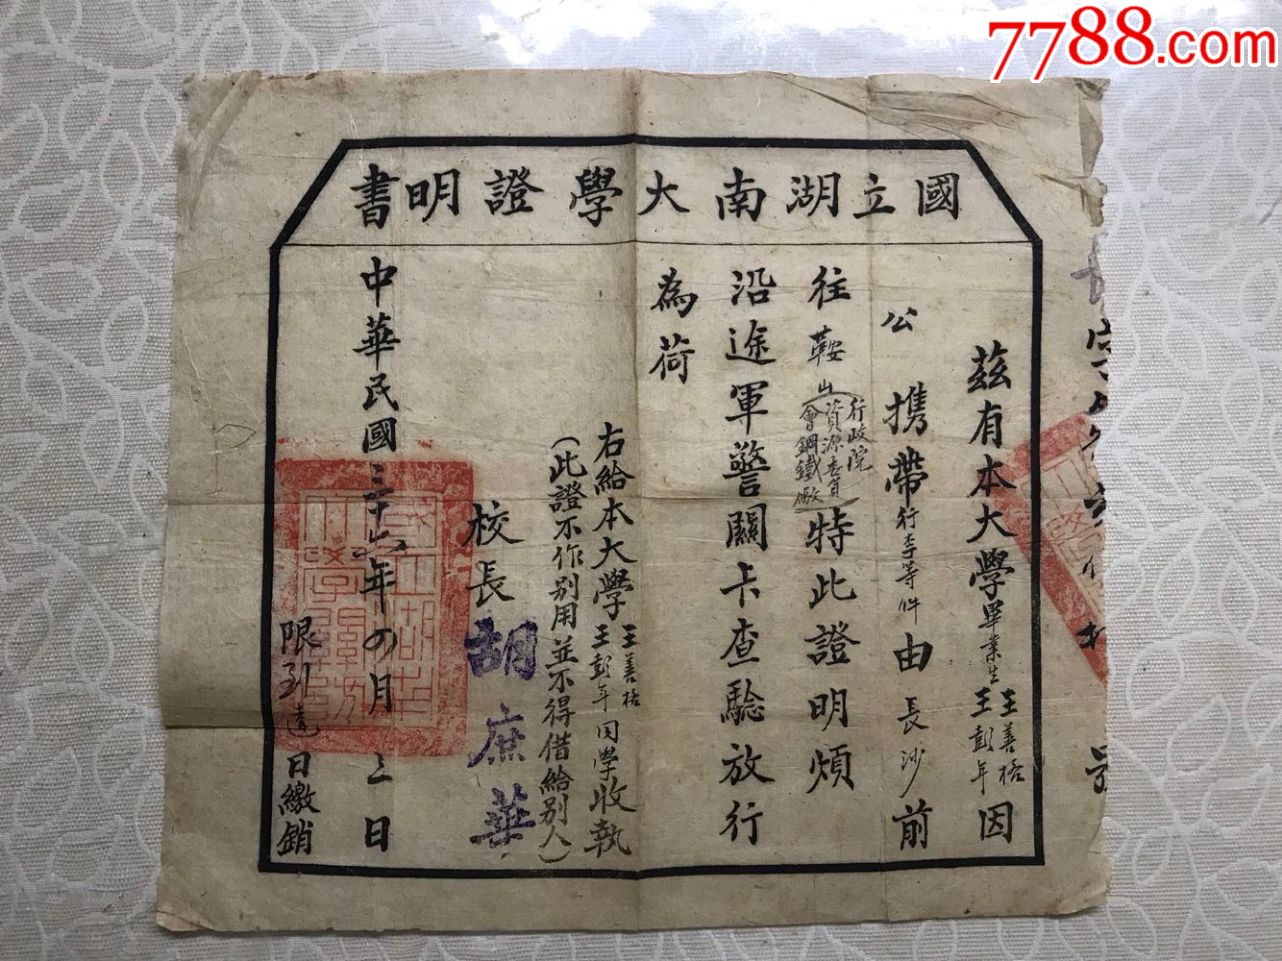 7788.com
國立湖南大學證明書
茲有本大學畢業生王善梧王彭年因
公攜帶行李等件由長沙前
往鞍山(行政院資源委員會鋼鐵廠)特此證明煩
沿途軍警關卡查驗放行
為荷
右給本大學王善梧王彭年同學收執
(此證不作別用並不得借給別人)
校長胡庶華
中華民國三十六年四月三日
限到達日繳銷